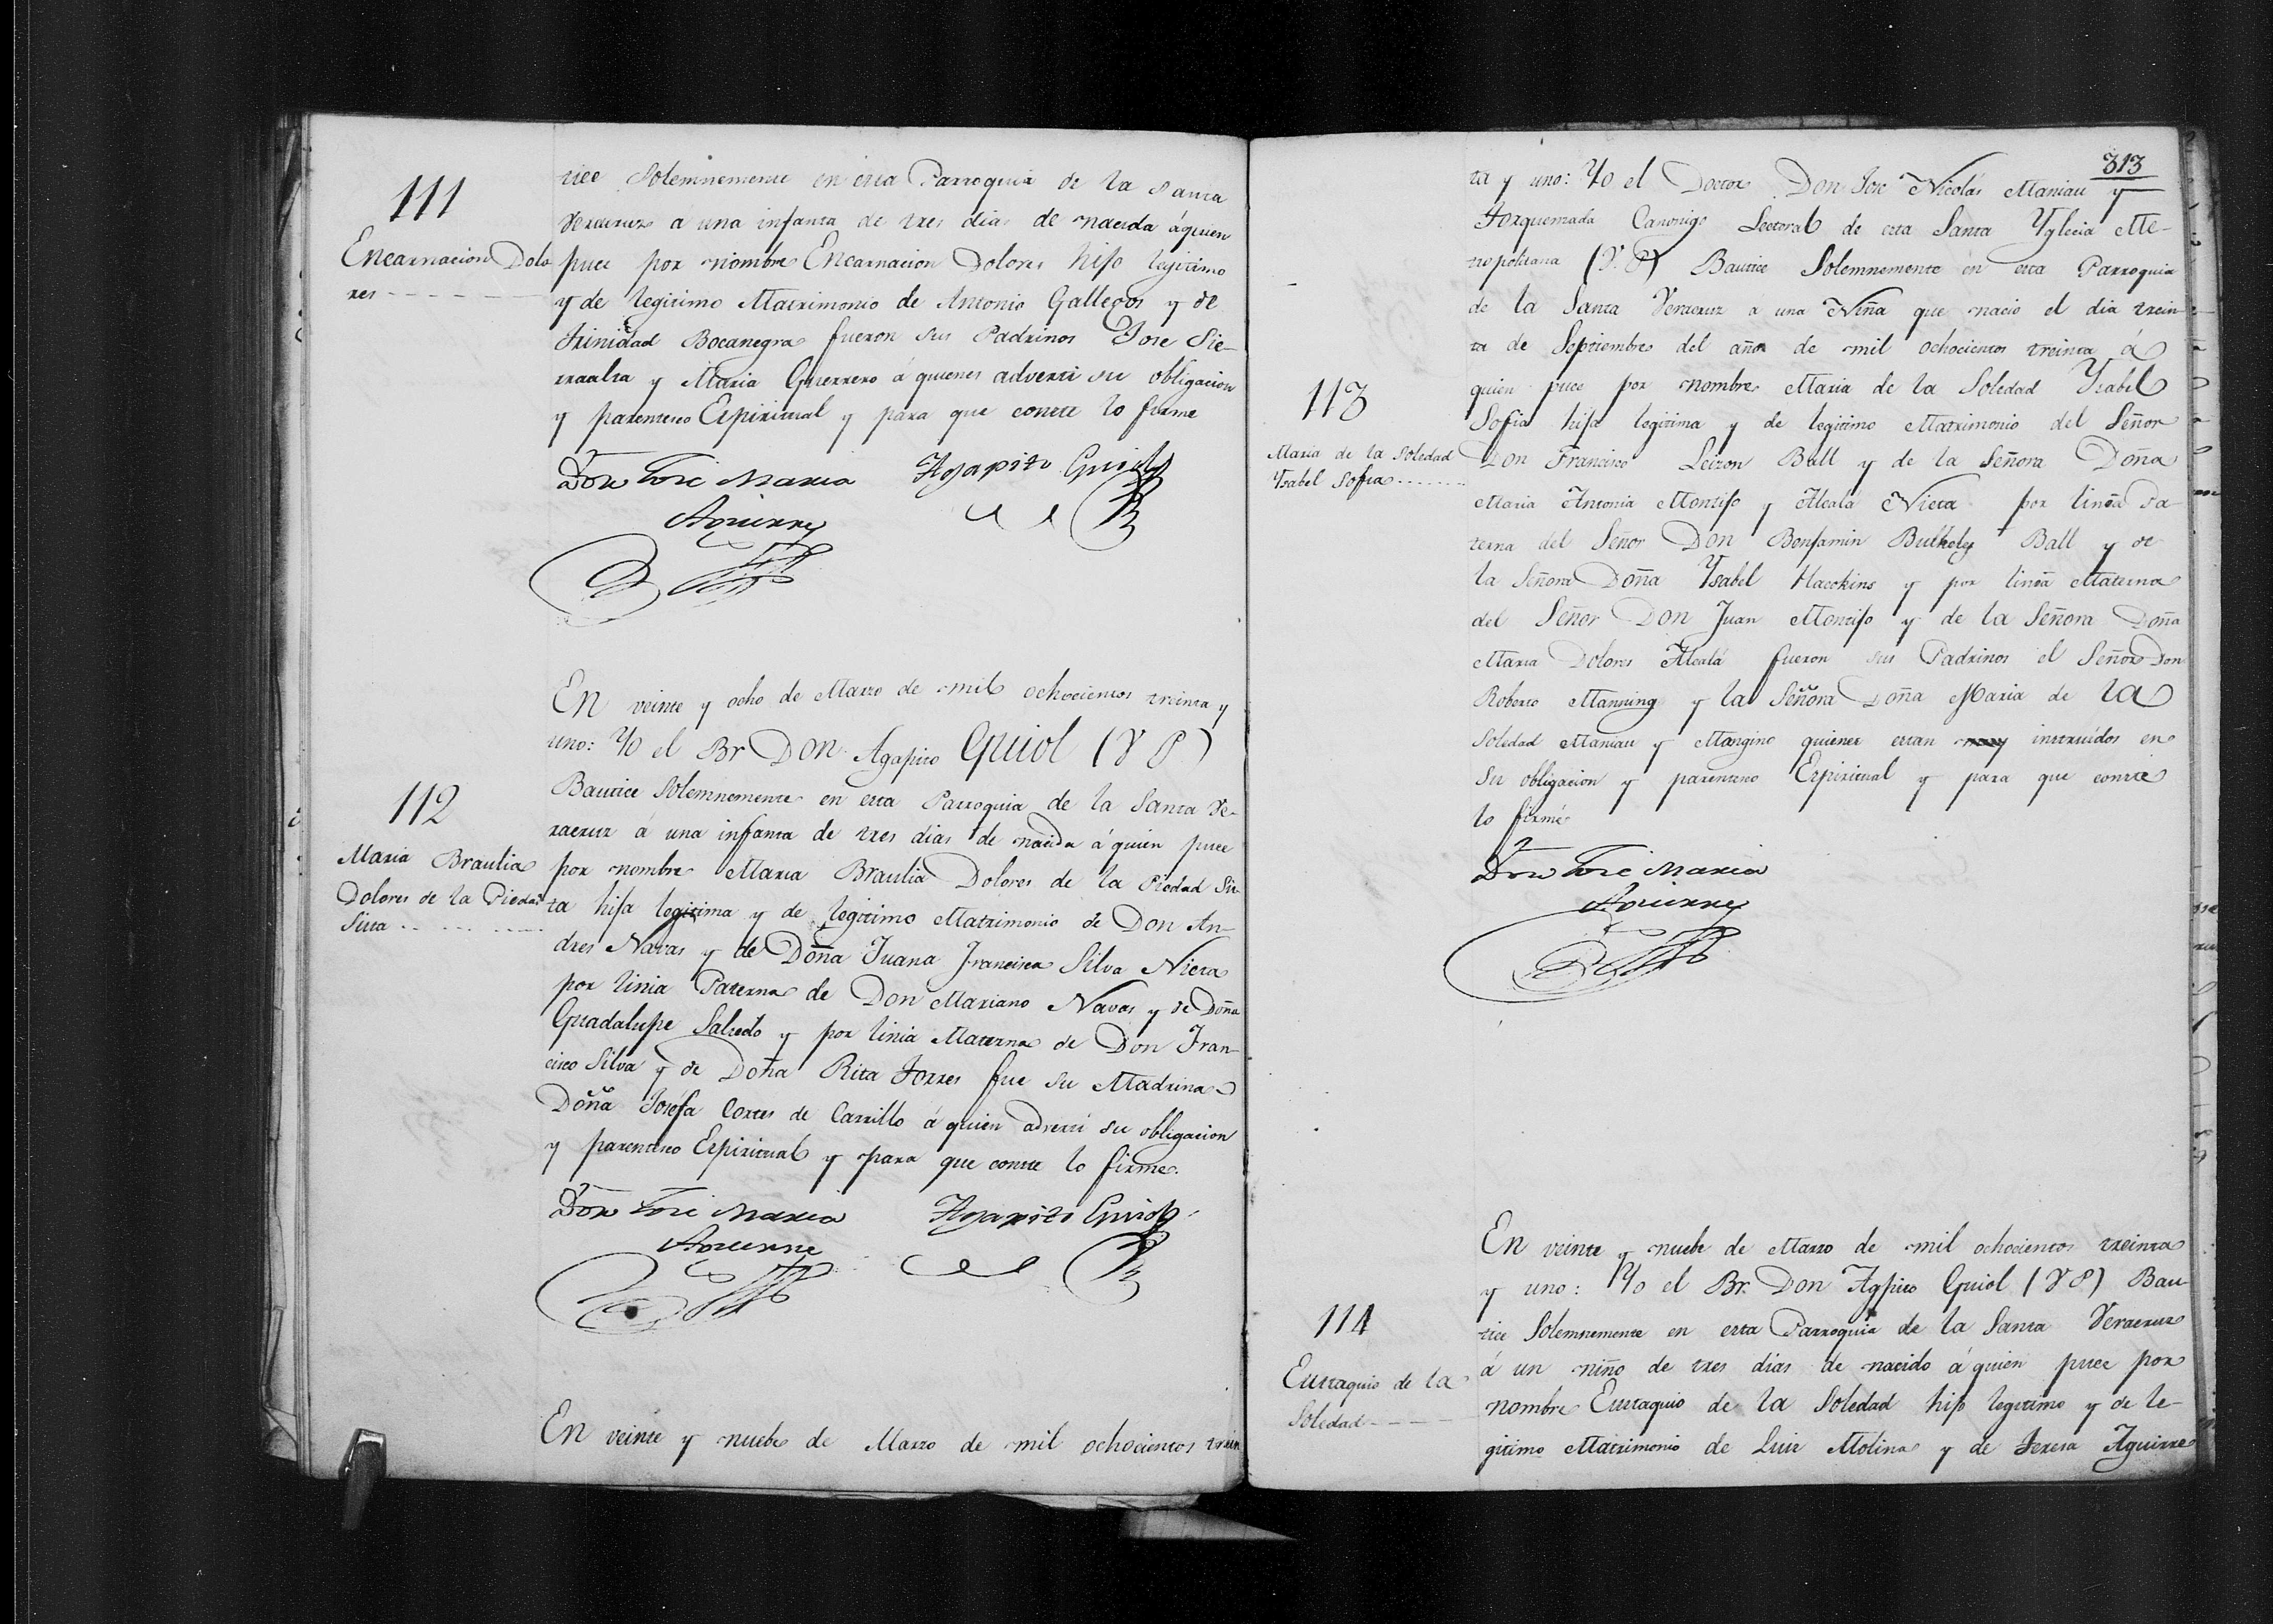 111
Encarnacion Dolo
res
tice Solemnemente en esta Parroquia de la Santa
Veracruz a una infanta de tres dias de nacida á quien
puce por nombre Encarnacion Dolores hijo legitimo
y de legitimo Matrimonio de Antonio Gallegos y de
Trinidad Bocanegra fueron sus Padrinos Jose Sie-
rraalta y Maria Guerrero á quienes adverti su obligacion
y parentesco Espiritual y para que conste lo firme
Don José Maria Agapito Guiol
Aguirre
112
Maria Braulia
Dolores de la Piedad
Sista
En veinte y ocho de Marzo de mil ochocientos treinta y
uno: Yo el Br Don Agapito Guiol (V P)
Bautice Solemnemente en esta Parroquia de la Santa Ve-
racruz á una infanta de tres dias de nacida á quien puce
por nombre Maria Braulia Dolores de la Piedad Sis-
ta hija legitima y de legitimo Matrimonio de Don An-
dres Navas y de Doña Juana Francisca Silva Nieta
por linia Paterna de Don Mariano Navas y de Doña
Guadalupe Salcedo y por linia Materna de Don Fran-
cisco Silva y de Doña Rita Torres fue su Madrina
Doña Josefa Cortes de Carrillo á quien adverti su obligacion
y parentesco Espiritual y para que conste lo firme.
Don José Maria Agapito Guiol
Aguirre
En veinte y nuebe de Marzo de mil ochocientos trein
313
ta y uno: Yo el Doctor Don Jose Nicolás Maniau y
Torquemada Canonigo Lectoral de esta Santa Yglecia Me-
tropolitana (V. P) Bautice Solemnemente en esta Parroquia
de la Santa Veracruz a una Niña que nacio el dia trein
ta de Septiembre del año de mil ochocientos treinta á
113
Maria de la Soledad
Ysabel Sofia
quien puce por nombre Maria de la Soledad Ysabel
Sofia hija legitima y de legitimo Matrimonio del Señor
Don Francisco Ball y de la Señora Doña
Maria Antonia Montijo y Alcalá Nieta por linea Pa-
terna del Señor Don Benjamin Bulkeley Ball y de
la Señora Doña Ysabel Hacokins y por linea Materna
del Señor Don Juan Montijo y de la Señora Doña
Maria Dolores Alcalá fueron sus Padrinos el Señor Don
Roberto Manning y la Señora Doña Maria de la
Soledad Maniau y Mangino quienes estan instruidos en
su obligacion y parentesco Espiritual y para que conste
lo firmé
Don José Maria
Aguirre
114
Eustaquio de la
Soledad
En veinte y nuebe de Marzo de mil ochocientos treinta
y uno: Yo el Br. Don Agpito Guiol (V P) Bau
tice Solemnemente en esta Parroquia de la Santa Veracruz
á un niño de tres dias de nacido á quien puce por
nombre Eustaquio de la Soledad hijo legitimo y de le-
gitimo Matrimonio de Luis Molina y de Teresa Aguirre